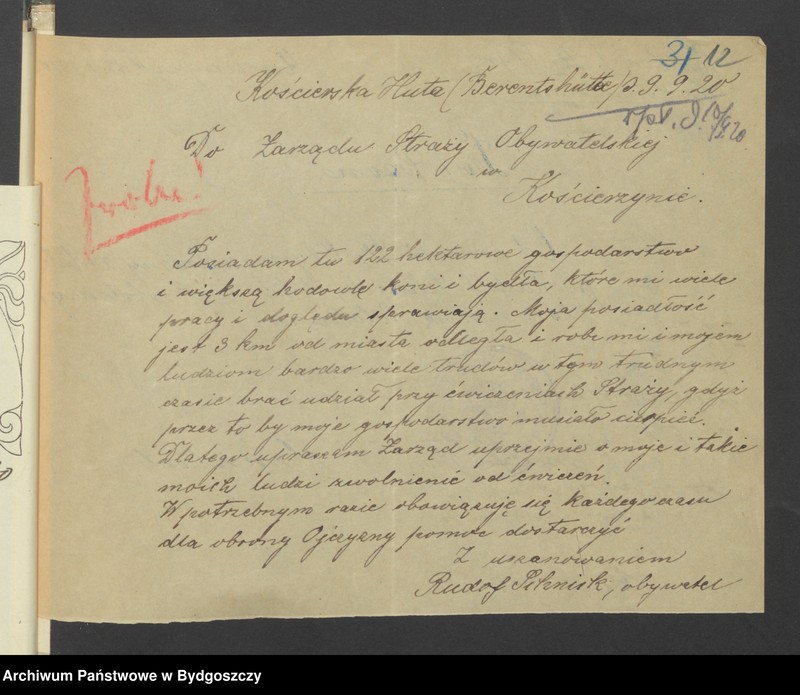 31 12
Kościerska Huta (Berentshütte) d. 9. 9. 20
Do Zarządu Straży Obywatelskiej
w
Kościerzynie.
Posiadam tu 122 hektarowe gospodarstwo
i większą hodowlę koni i bydła, które mi wiele
pracy i doględu sprawiają. Moja posiadłość
jest 3 km od miasta odległa i robi mi i mojem
ludziom bardzo wiele trudów w tym trudnym
czasie brać udział przy ćwiczeniach Straży, gdyż
przez to by moje gospodarstwo musiało cierpieć.
Dlatego upraszam Zarząd uprzejmie o moje i takie
moich ludzi zwolnienié od ćwiczeń.
W potrzebnym razie obowiązuję się każdego czasu
dla obrony Ojczyzny pomoc dostarczyć
Z uszanowaniem
Rudof, obywatel
Archiwum Państwowe w Bydgoszczy